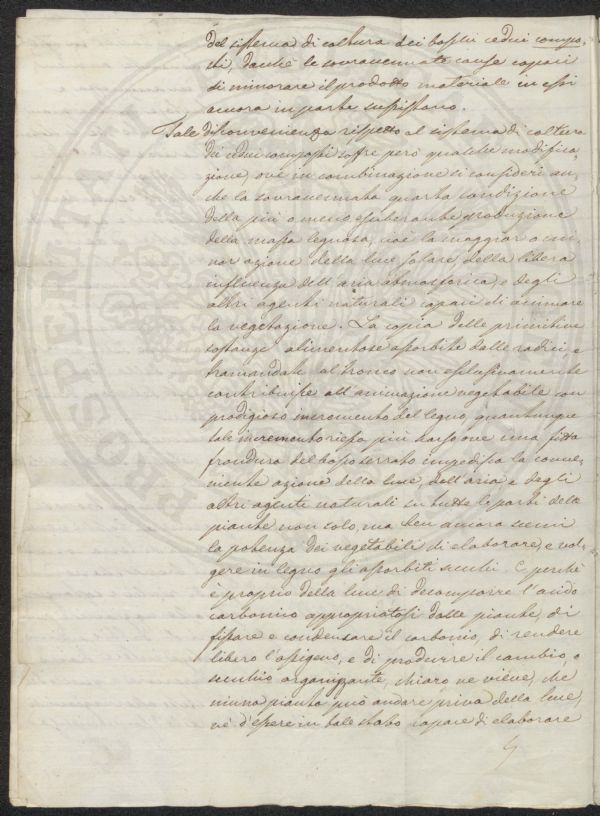 del sistema di coltura dei boschi cedui compo-
sti, dacchè le sovraccennate cause capaci
di minorare il prodotto materiale in essi
ancora in parte sussistano.
Tale disconvenienza rispetto al sistema di coltura
dei cedui composti soffre però qualche modifica-
zione, ove in combinazione si consideri an-
che la sovraccennata quarta condizione
della più o meno esuberante produzione
della massa legnosa, cioè la maggior o mi-
nor azione della luce solare, della libera
influenza dell'aria atmosferica, e degli
altri agenti naturali capaci di animare
la vegetazione. La copia delle primitive
sostanze alimentose assorbite dalle radici, e
tramandate al tronco non esclusivamente
contribuisce all'animazione vegetabile con
prodigioso incremento del legno, quantunque
tale incremento riesca più scarso ove una fitta
frondura del bosco serrato impedisca la conve-
niente azione della luce, dell'aria, e degli
altri agenti naturali su tutte le parti delle
piante non solo, ma ben ancora scemi
la potenza dei vegetabili di elaborare, e vol-
gere in legno gli assorbiti succhi. E perchè
è proprio della luce di decomporre l'acido
carbonico appropriatosi dalle piante, di
fissare e condensare il carbonio, di rendere
libero l'ossigeno, e di produrre il cambio, o
succhio organizzante, chiaro ne viene, che
niuna pianta può andare priva della luce,
nè d'essere in tale stato capace di elaborare
PROSPERITATI